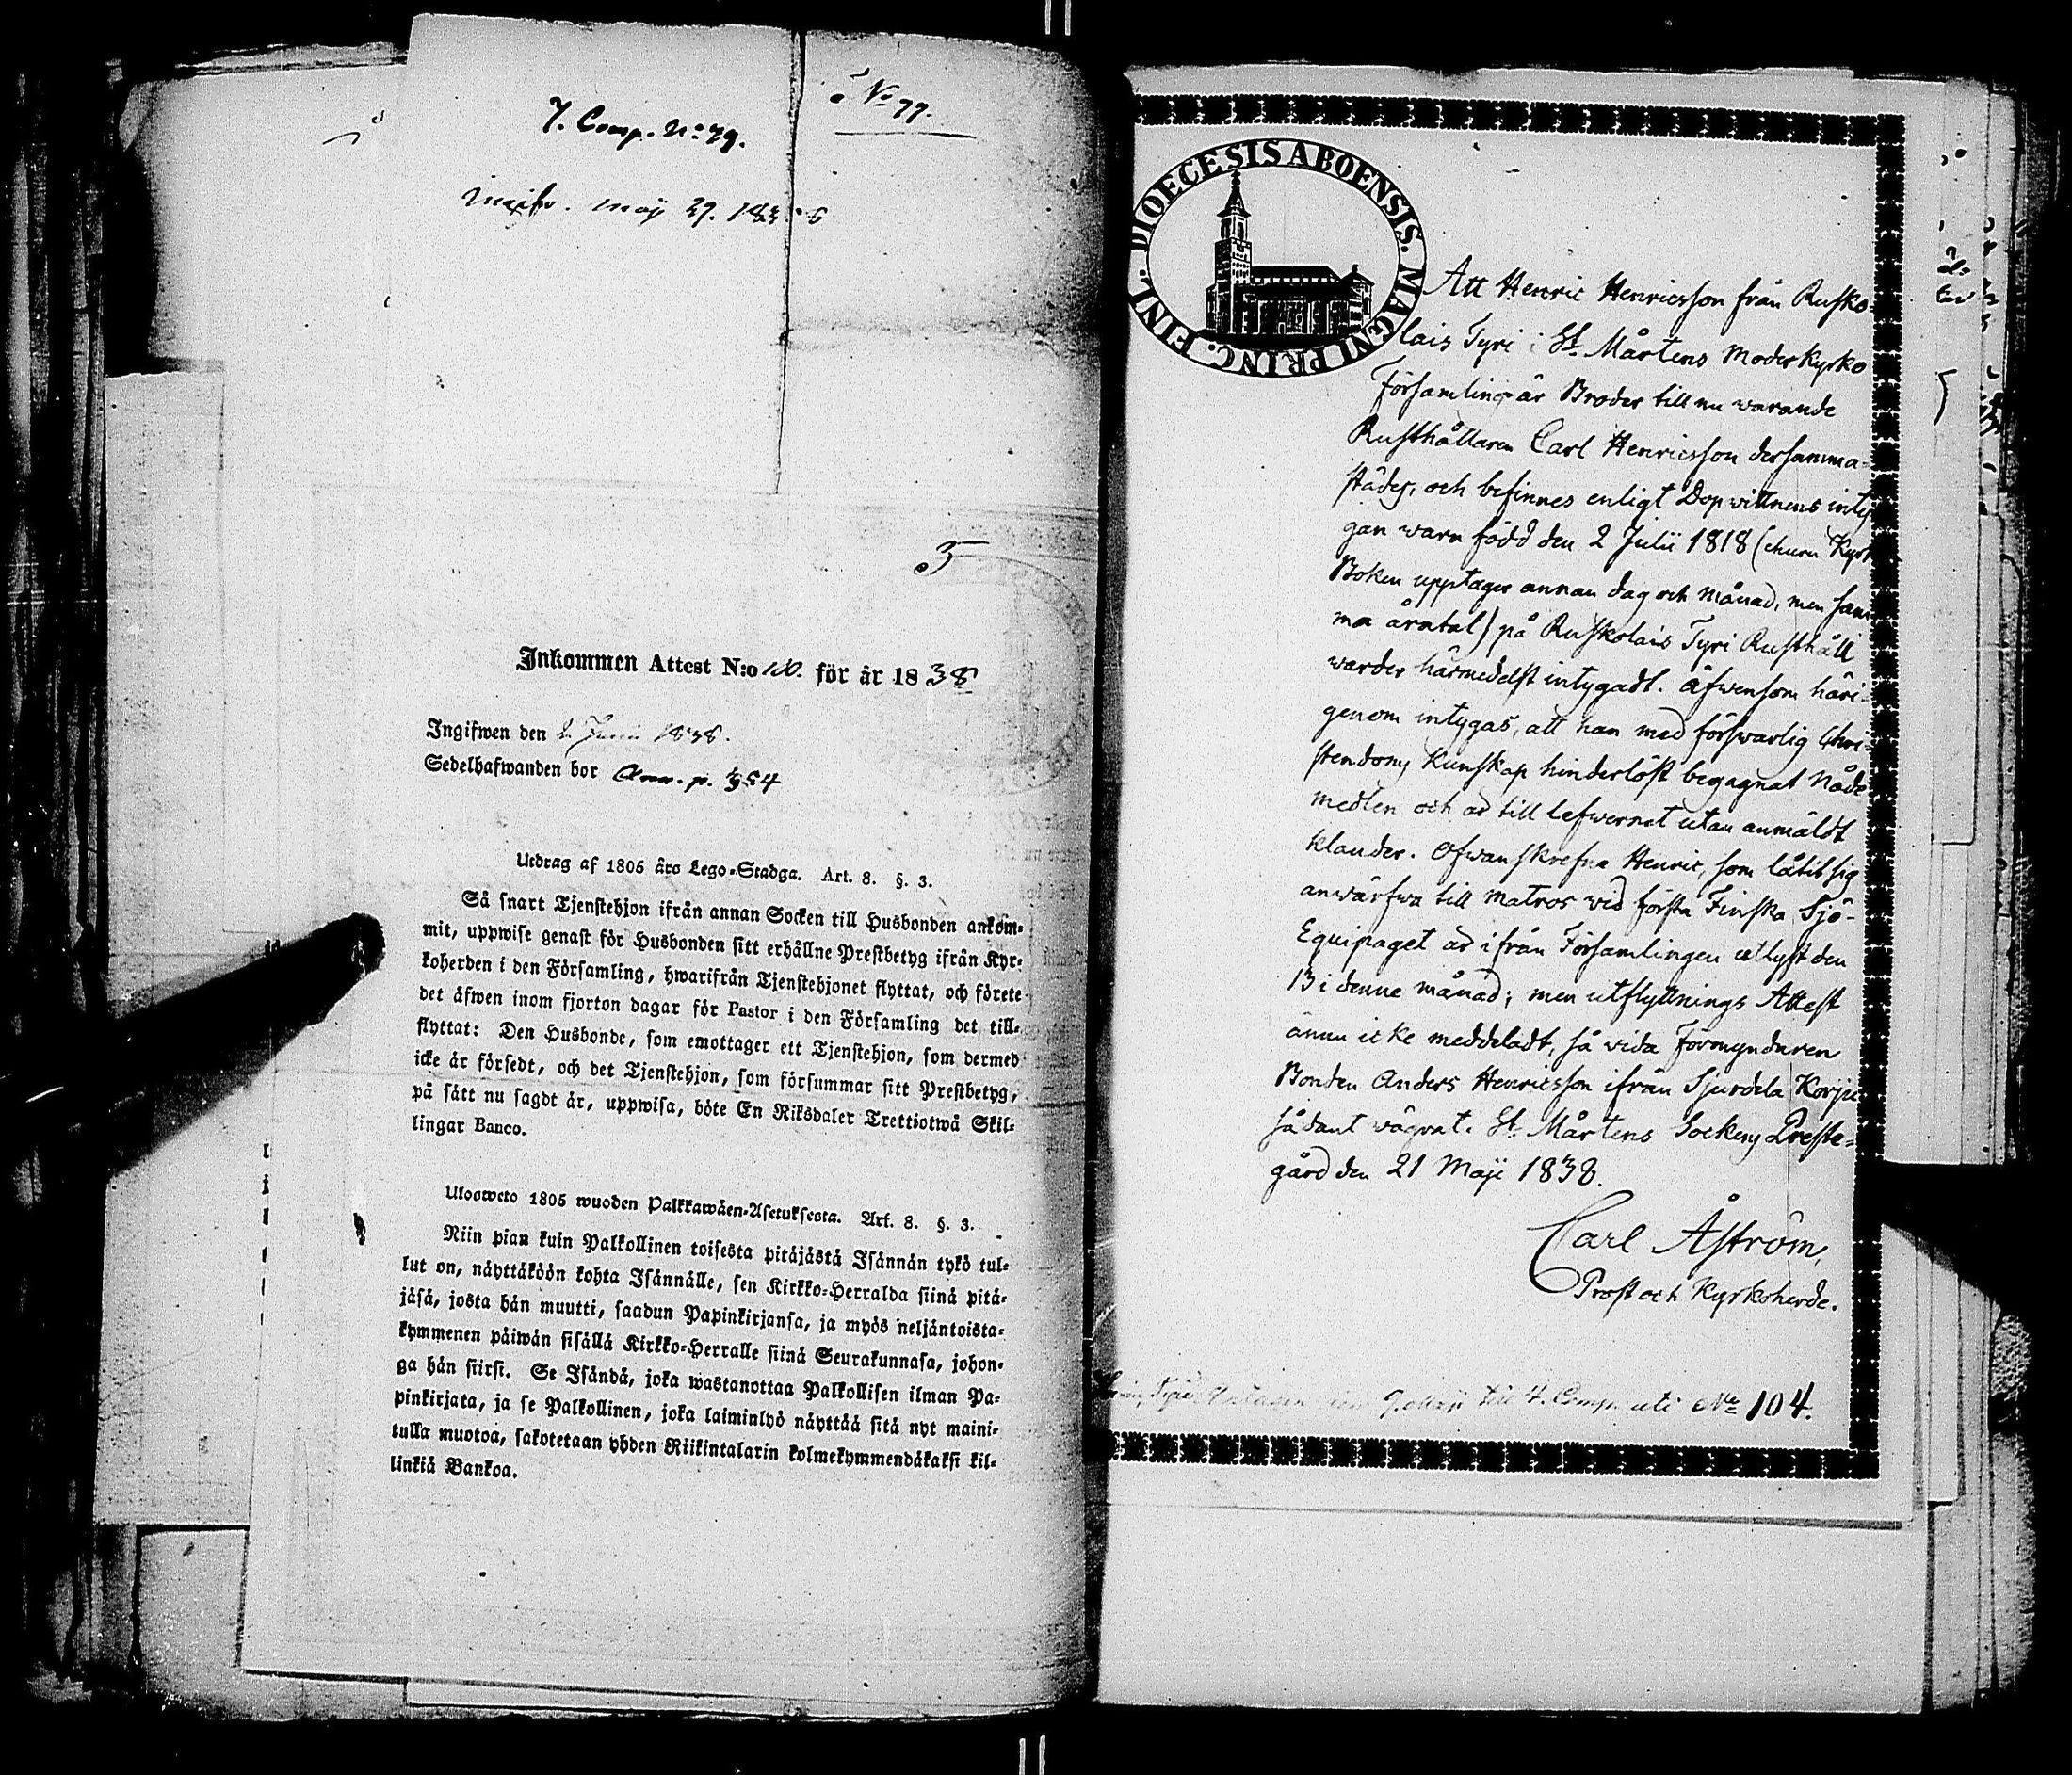 7. Comp. No: 79.
No 77.
may 29. 1838
5
Inkommen Attest N:o 100. för år 1838
Ingifwen den 2. Junii 1838.
Sedelhafwanden bor Ann. p. 354
Utdrag af 1805 års Lego-Stadga. Art. 8. §. 3.
Så snart Tjenstehjon ifrån annan Socken till Husbonden ankom-
mit, uppwise genast för Husbonden sitt erhållne Prestbetyg ifrån Kyr-
koherden i den Församling, hwarifrån Tjenstehjonet flyttat, och förete
det äfwen inom fjorton dagar för Pastor i den Församling det till-
flyttat: Den Husbonde, som emottager ett Tjenstehjon, som dermed
icke är försedt, och det Tjenstehjon, som försummar sitt Prestbetyg,
på sätt nu sagdt är, uppwisa, böte En Riksdaler Trettiotwå Skil-
lingar Banco.
Ulosweto 1805 wuoden Palkkawäen-Asetuksesta. Art. 8. §. 3.
Niin pian kuin Palkollinen toisesta pitäjästä Isännän tykö tul-
lut on, näyttäköön kohta Isännälle, sen Kirkko-Herralda siinä pitä-
jäsä, josta hän muutti, saadun Papinkirjansa, ja myös neljäntoista-
kymmenen päiwän sisällä Kirkko-Herralle siinä Seurakunnasa, johon-
ga hän siirsi. Se Isändä, joka wastanottaa Palkollisen ilman Pa-
pinkirjata, ja se Palkollinen, joka laiminlyö näyttää sitä nyt maini-
tulla muotoa, sakotetaan yhden Riikintalarin kolmekymmendäkaksi kil-
linkiä Bankoa.
DIOECESIS ABOENSIS. MAGNI PRINC. FINL.
Att Henric Henricsson från Rusko-
lais Tyri i St. Mårtens Moderkyrko
Församling är Broder till nu warande
Rusthållaren Carl Henricsson dersamma-
städes, och befinnes enligt Dopwittnens inty
gan wara född den 2 Julii 1818 (ehuru Kyrk
Boken upptager annan dag och månad, men sam
ma åratal) på Ruskolais Tyri Rusthåll
warder härmedelst intygadt. Äfwensom häri-
genom intygas, att han med förswarlig Chri-
stendoms Kunskap hinderlöst begagnat Nåde
medlen och är till lefwernet utan anmäldt
klander. Ofwanskrefna Henric, som låtit sig
anwärfwa till Matros wid första Finska Sjö-
Equipaget är ifrån Församlingen utlyst den
13 i denne månad; men utflyttnings Attest
ännu icke meddeladt, så vida Förmyndaren
Bonden Anders Henricsson ifrån Sjurdela Korpi
sådant wägrat. St. Mårtens Sockens Preste-
gård den 21 Maji 1838.
Carl Åström,
Prost och Kyrkoherde.
Antagen den 9 Maji till 7. Comp. uti No 104.